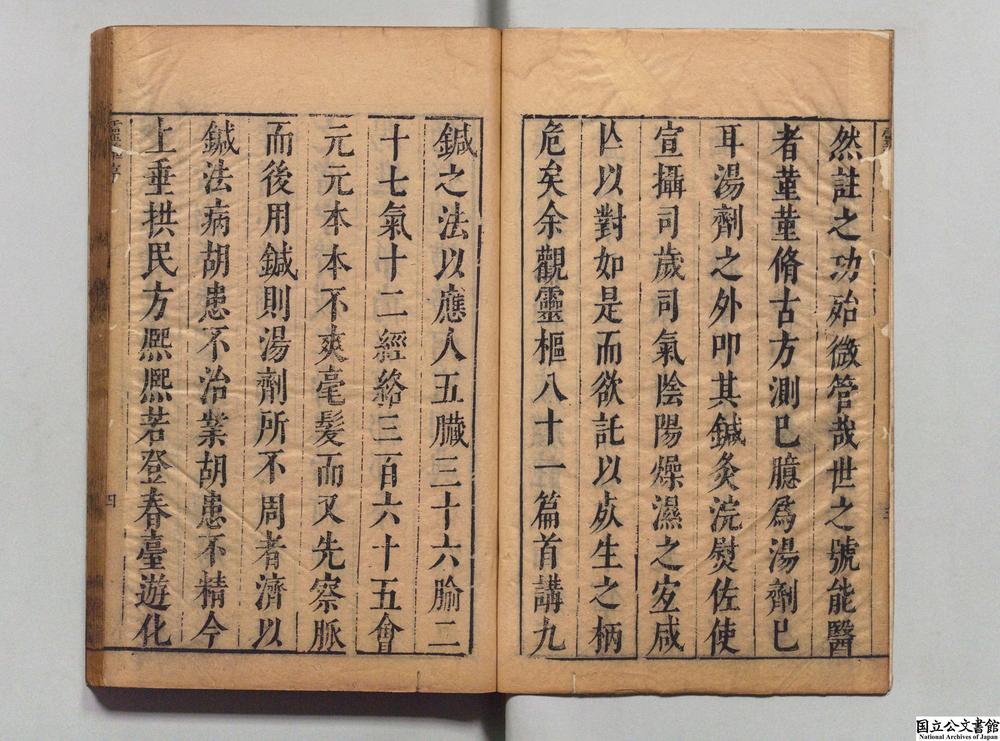 然註之功殆微管哉世之號能醫
者菫菫脩古方測已臆爲湯劑已
耳湯劑之外叩其鍼灸浣熨佐使
宣攝司歲司氣陰陽燥濕之宐咸
亾以對如是而欲託以死生之柄
危矣余觀靈樞八十一篇首講九
鍼之法以應人五臟三十六腧二
十七氣十二經絡三百六十五會
元元本本不爽毫髮而又先察脈
而後用鍼則湯劑所不周者濟以
鍼法病胡患不治業胡患不精今
上垂拱民方熈熈若登春臺遊化
四
国立公文書館
National Archives of Japan